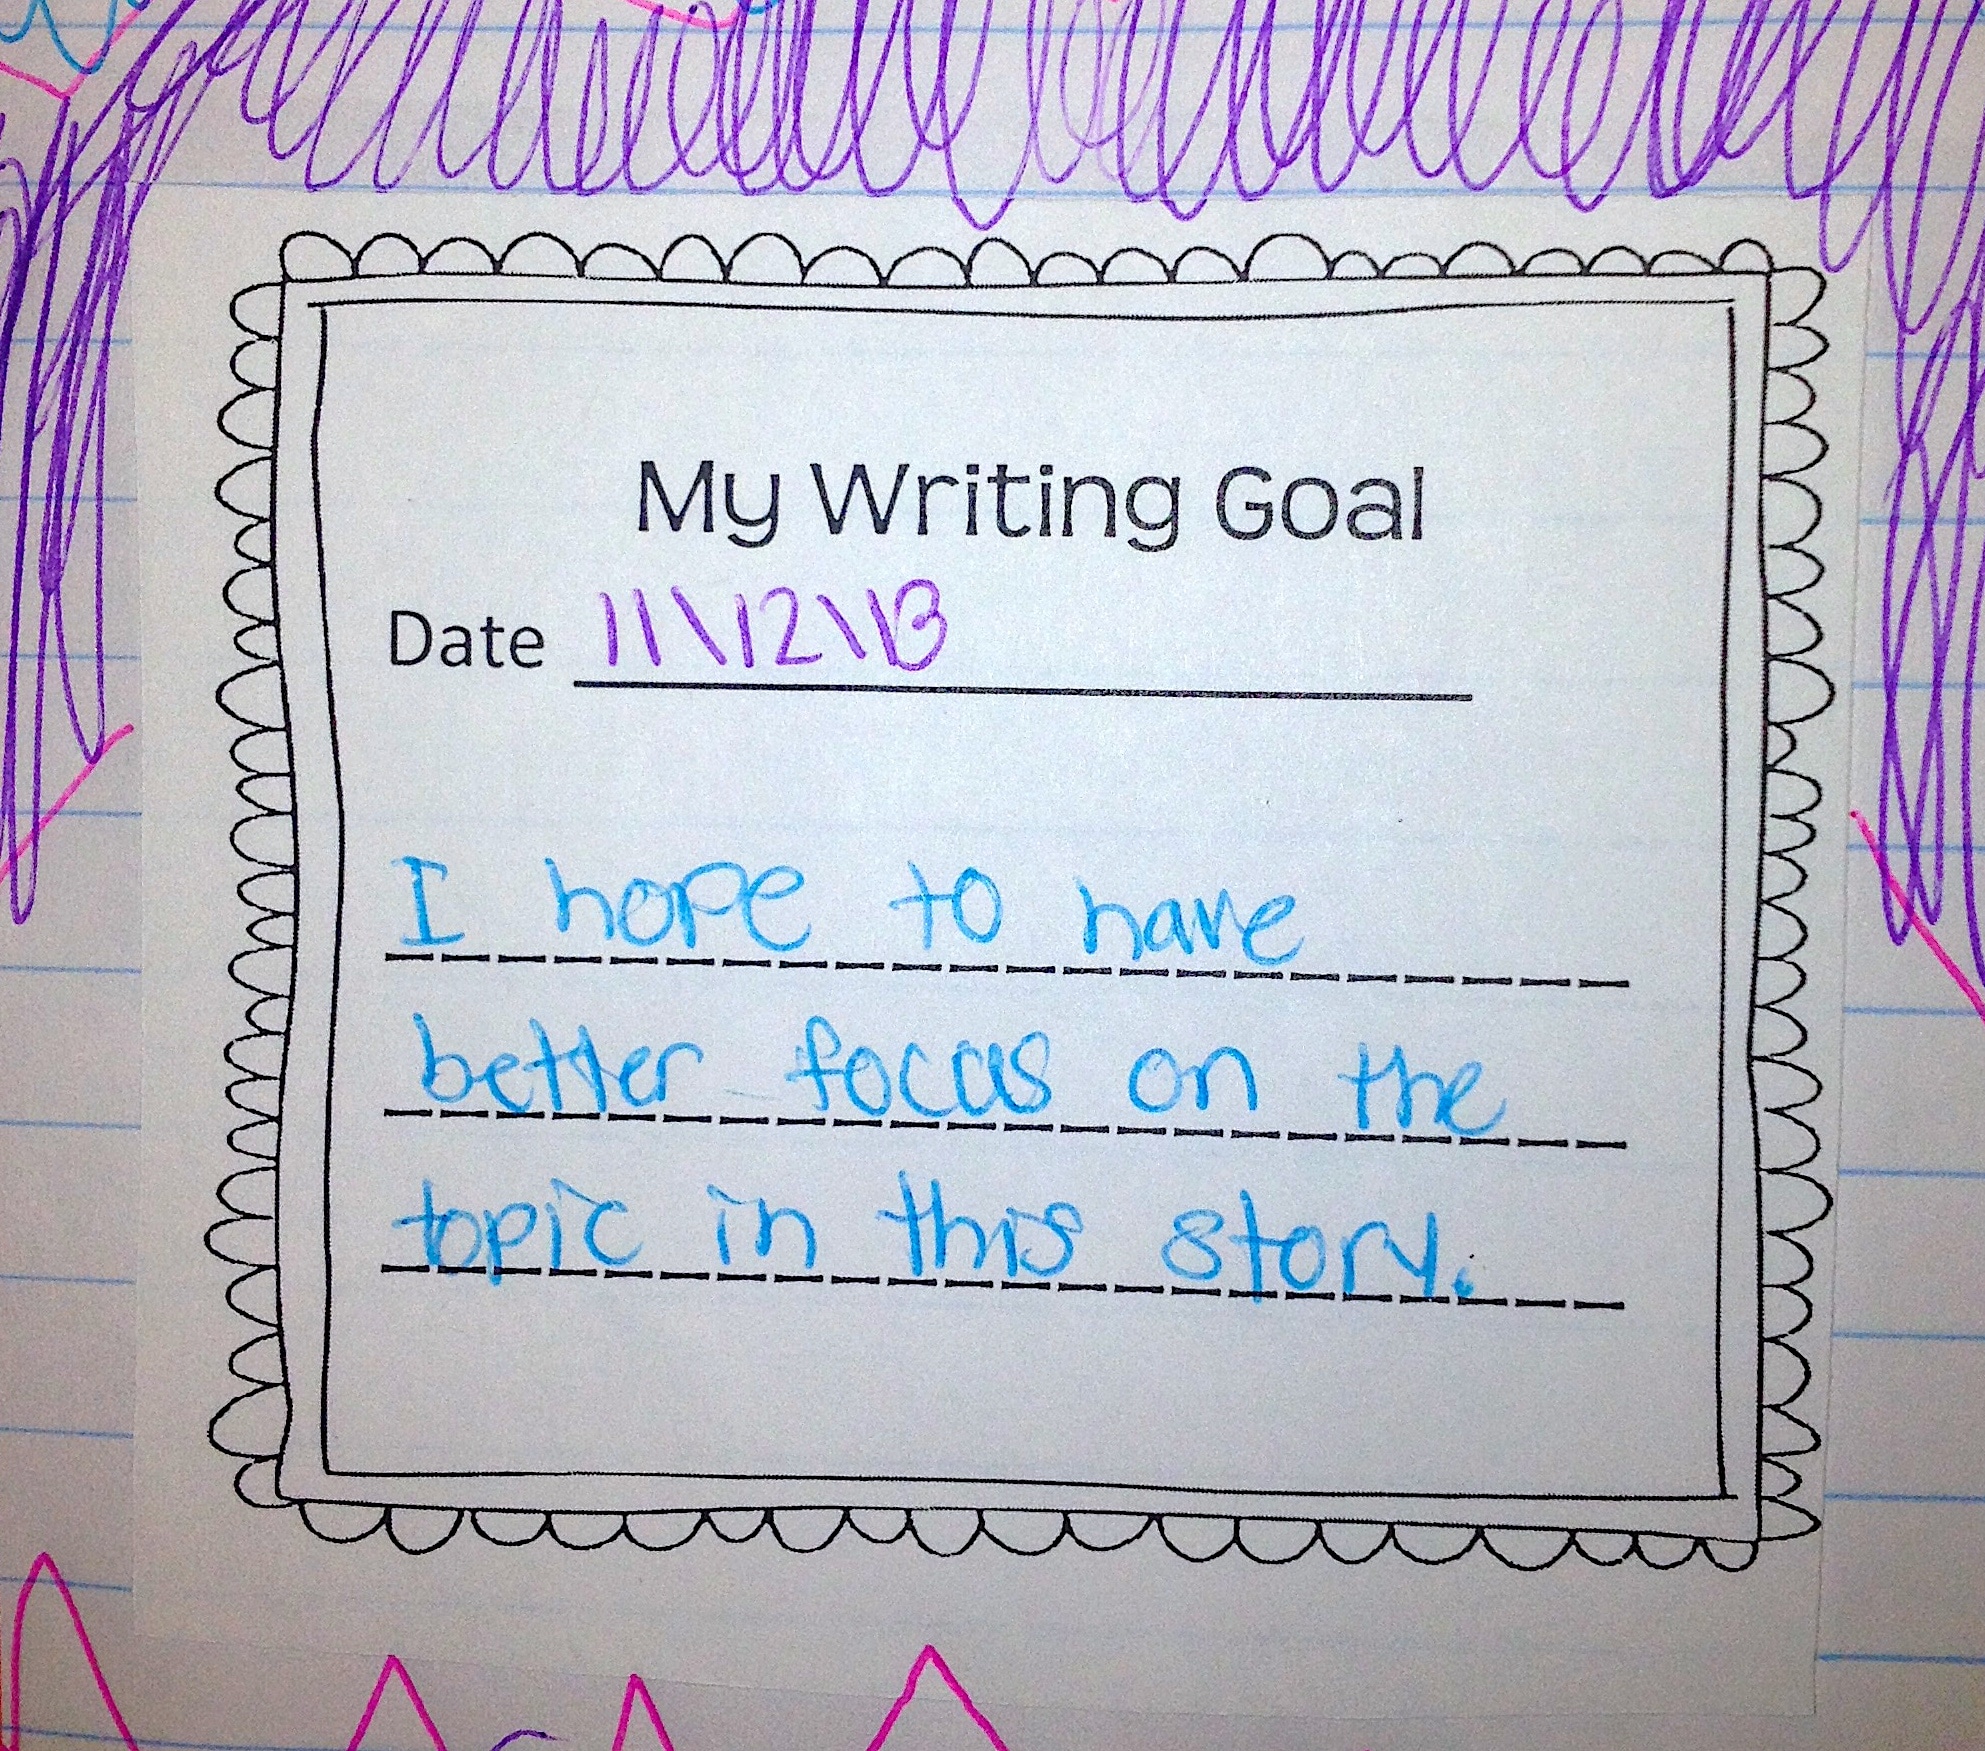 My Writing Goal
Date 11\12\13
I hope to have
better focus on the
topic in this story.